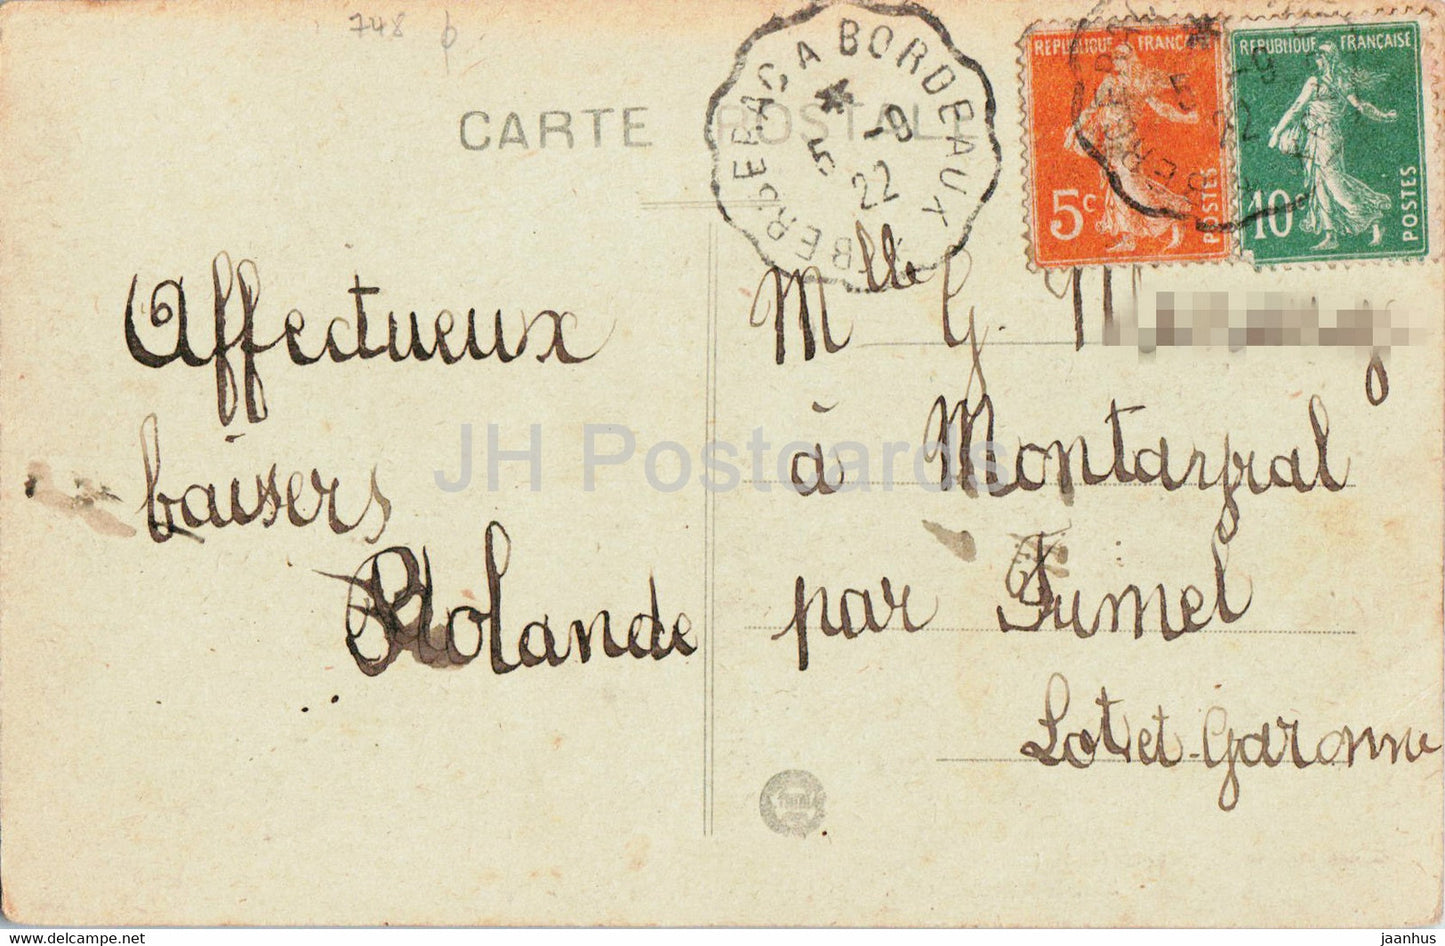 748
CARTE POSTALE
BERGERAC A BORDEAUX
5 -9
22
REPUBLIQUE FRANÇAISE
5c
POSTES
REPUBLIQUE FRANÇAISE
10c
POSTES
Affectueux
baisers
Rolande
Mlle G.
à Montayral
par Fumel
Lot et-Garonne
JH Postcards
www.delcampe.net
jaanhus